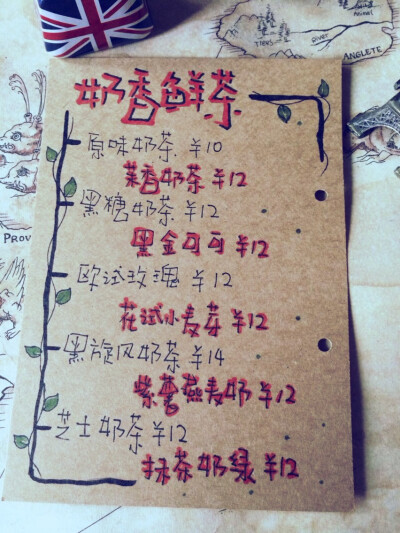 奶香鲜茶
原味奶茶 ¥10
茉香奶茶 ¥12
黑糖奶茶 ¥12
黑金可可 ¥12
欧试玫瑰 ¥12
花试小麦芽 ¥12
黑旋风奶茶 ¥14
紫薯燕麦奶 ¥12
芝士奶茶 ¥12
抹茶奶绿 ¥12
TIERS
River
ANGLETE
PROV